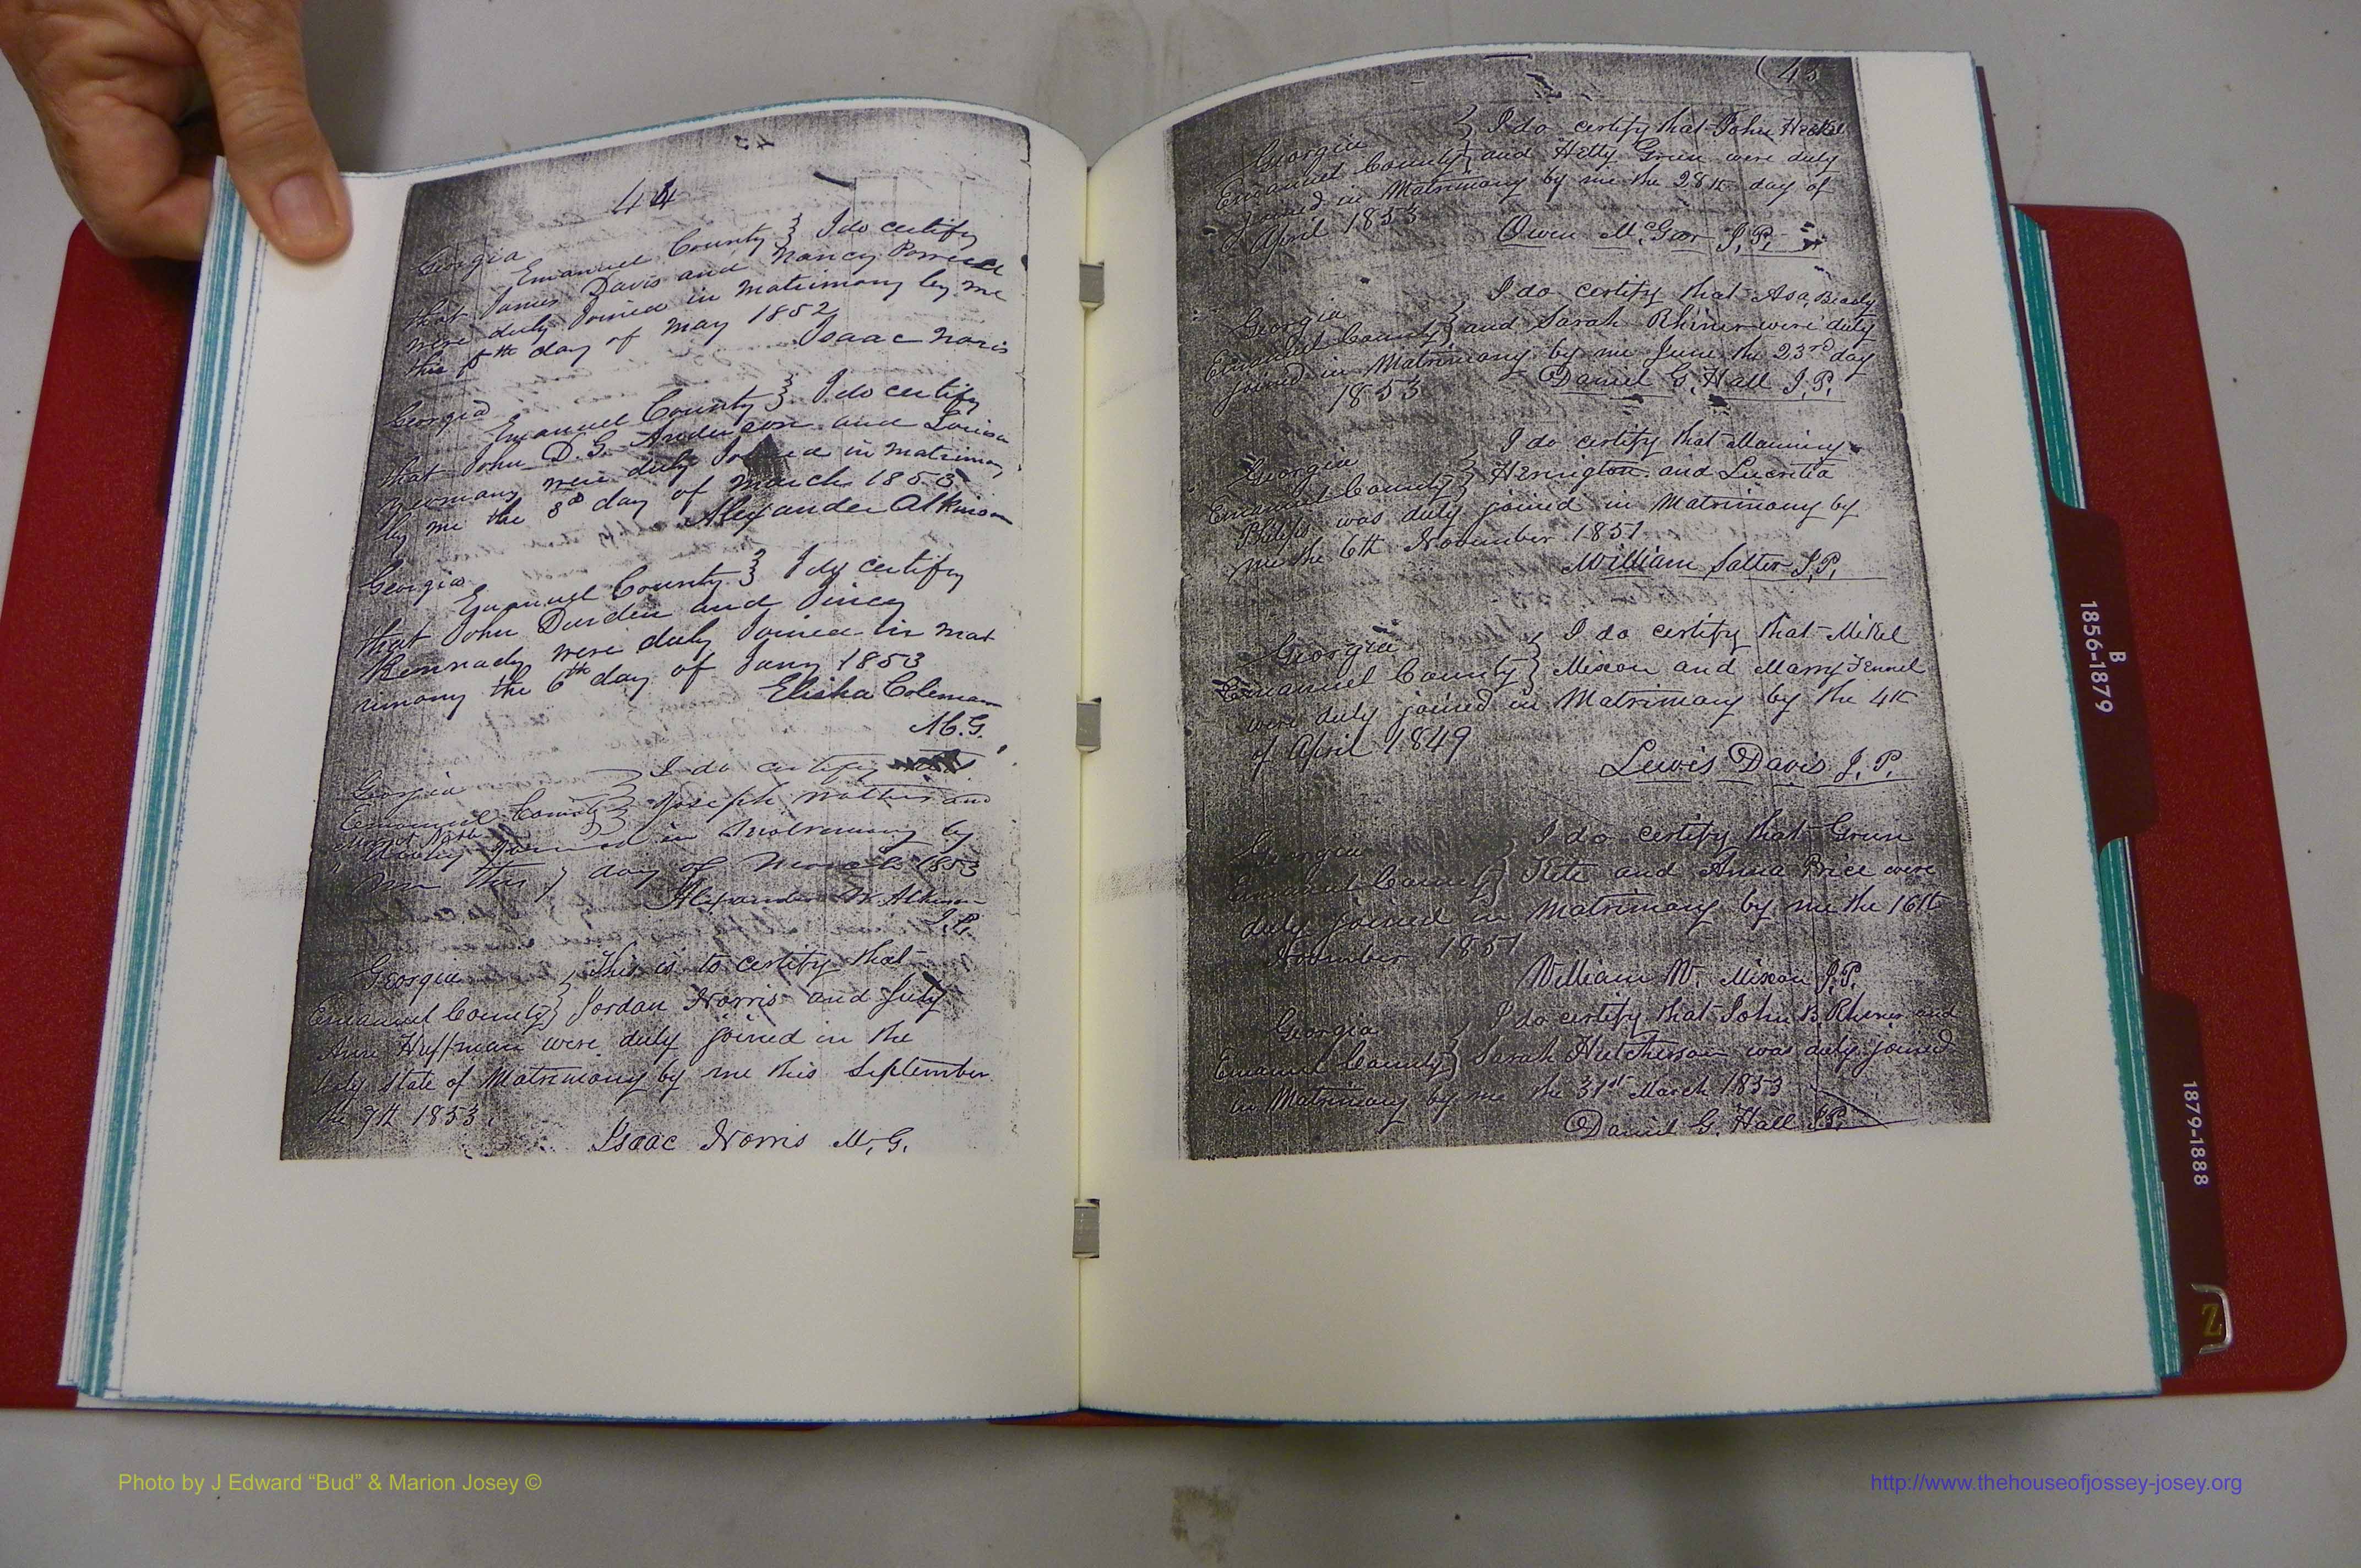 44
Georgia
Emanuel County } I do certify
that James Davis and Nancy
were duly Joined in matrimony by me
this day of May 1852
Isaac Noris
Georgia
Emanuel County } I do certify
that John D. G. Anderson and Louisa
were duly Joined in matrimony
by me the 3d day of March 1853
Alexander Atkinson
Georgia
Emanuel County } I do certify
that John Durden and Piney
Kennady were duly Joined in mat
rimony the 6th day of Jany 1853
Elisha Coleman
M.G.
Georgia } I do certify
Emanuel County } Joseph and
in by
me this day of 1853
Alexander Atkinson
J.P.
Georgia } This is to certify that
Emanuel County } Jordan Norris and July
Ann Huffman were duly joined in the
holy state of Matrimony by me this September
the 9th 1853.
Isaac Norris M.G.
45
Georgia } I do certify that John
Emanuel County } and Hetty Green were duly
joined in Matrimony by me the 28th day of
April 1853
Owen McGar J.P.
Georgia } I do certify that Asa
Emanuel County } and Sarah Rhiner were duly
joined in Matrimony by me June the 23rd day
1853
Daniel G. Hall J.P.
Georgia } I do certify that Manning
Emanuel County } Herrington and Lucretia
Philips was duly joined in Matrimony by
me the 6th November 1851
William Salter J.P.
Georgia } I do certify that Mikel
Emanuel County } Mixon and Marry Fennel
were duly joined in Matrimony by the 4th
of April 1849
Lewis Davis J.P.
Georgia } I do certify that Green
Emanuel County } and Anna Price were
duly joined in Matrimony by me the 16th
November 1851
William W. Mixon J.P.
Georgia } I do certify that John B. Rhiner and
Emanuel County } Sarah Hutcherson was duly joined
in Matrimony by me the 31st March 1853
Daniel G. Hall J.P.
B
1856-1879
1879-1888
Z
Photo by J Edward “Bud” & Marion Josey ©
http://www.thehouseofjossey-josey.org